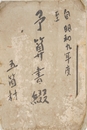 自昭和九年度
至
予算書綴
五箇村